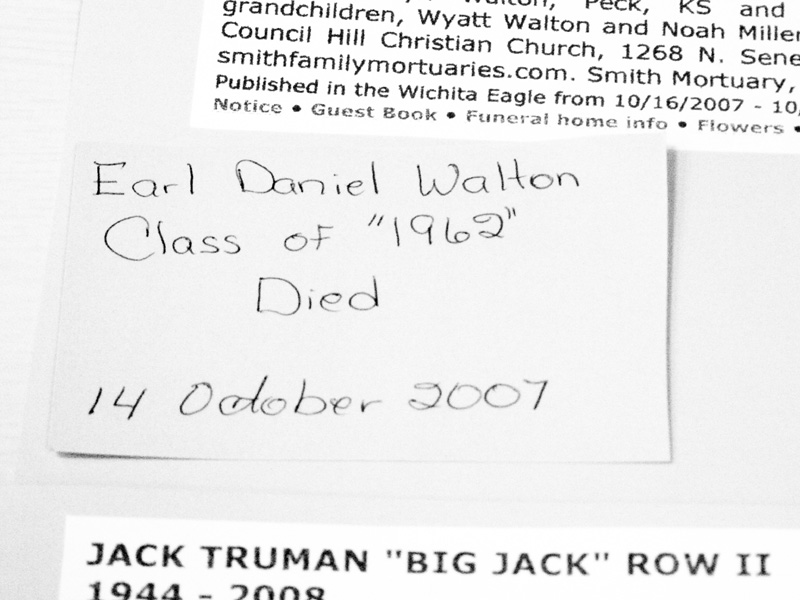 Walton, Peck, KS and
grandchildren, Wyatt Walton and Noah Miller
Council Hill Christian Church, 1268 N. Sene
smithfamilymortuaries.com. Smith Mortuary,
Published in the Wichita Eagle from 10/16/2007 - 10
Notice • Guest Book • Funeral home info • Flowers •
Earl Daniel Walton
Class of "1962"
Died
14 October 2007
JACK TRUMAN "BIG JACK" ROW II
1944 - 2008